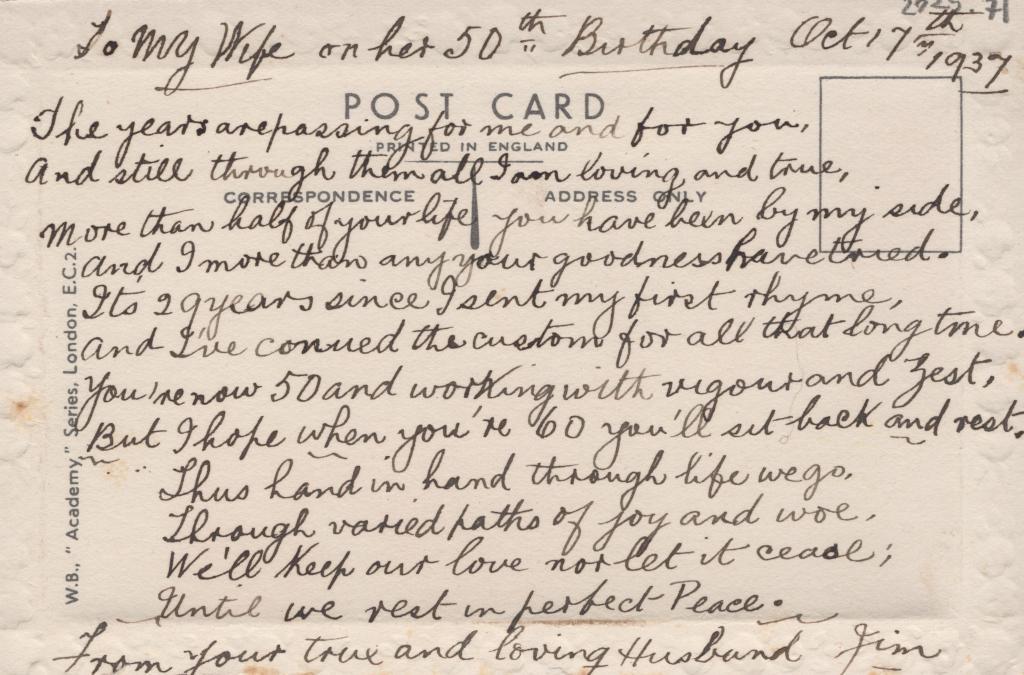 To My Wife on her 50th Birthday Oct 17th 1937
POST CARD
The years are passing for me and for you,
PRINTED IN ENGLAND
And still through them all I am loving and true,
CORRESPONDENCE ADDRESS ONLY
More than half of your life you have been by my side,
And I more than any your goodness have tried.
Its 29 years since I sent my first rhyme,
And I've conued the custom for all that long tme.
You're now 50 and working with vigour and Zest,
But I hope when you're 60 you'll sit back and rest.
Thus hand in hand through life we go,
Through varied paths of joy and woe,
We'll Keep our love nor let it cease;
Until we rest in perfect Peace.
From your true and loving Husband Jim
W.B., "Academy" Series, London, E.C.2.